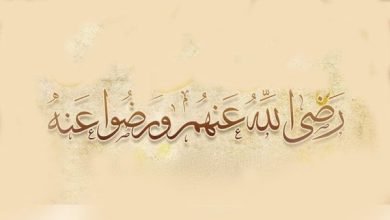 رَضِىَ اللَّهُ عَنهُم وَرَضُوا عَنهُ